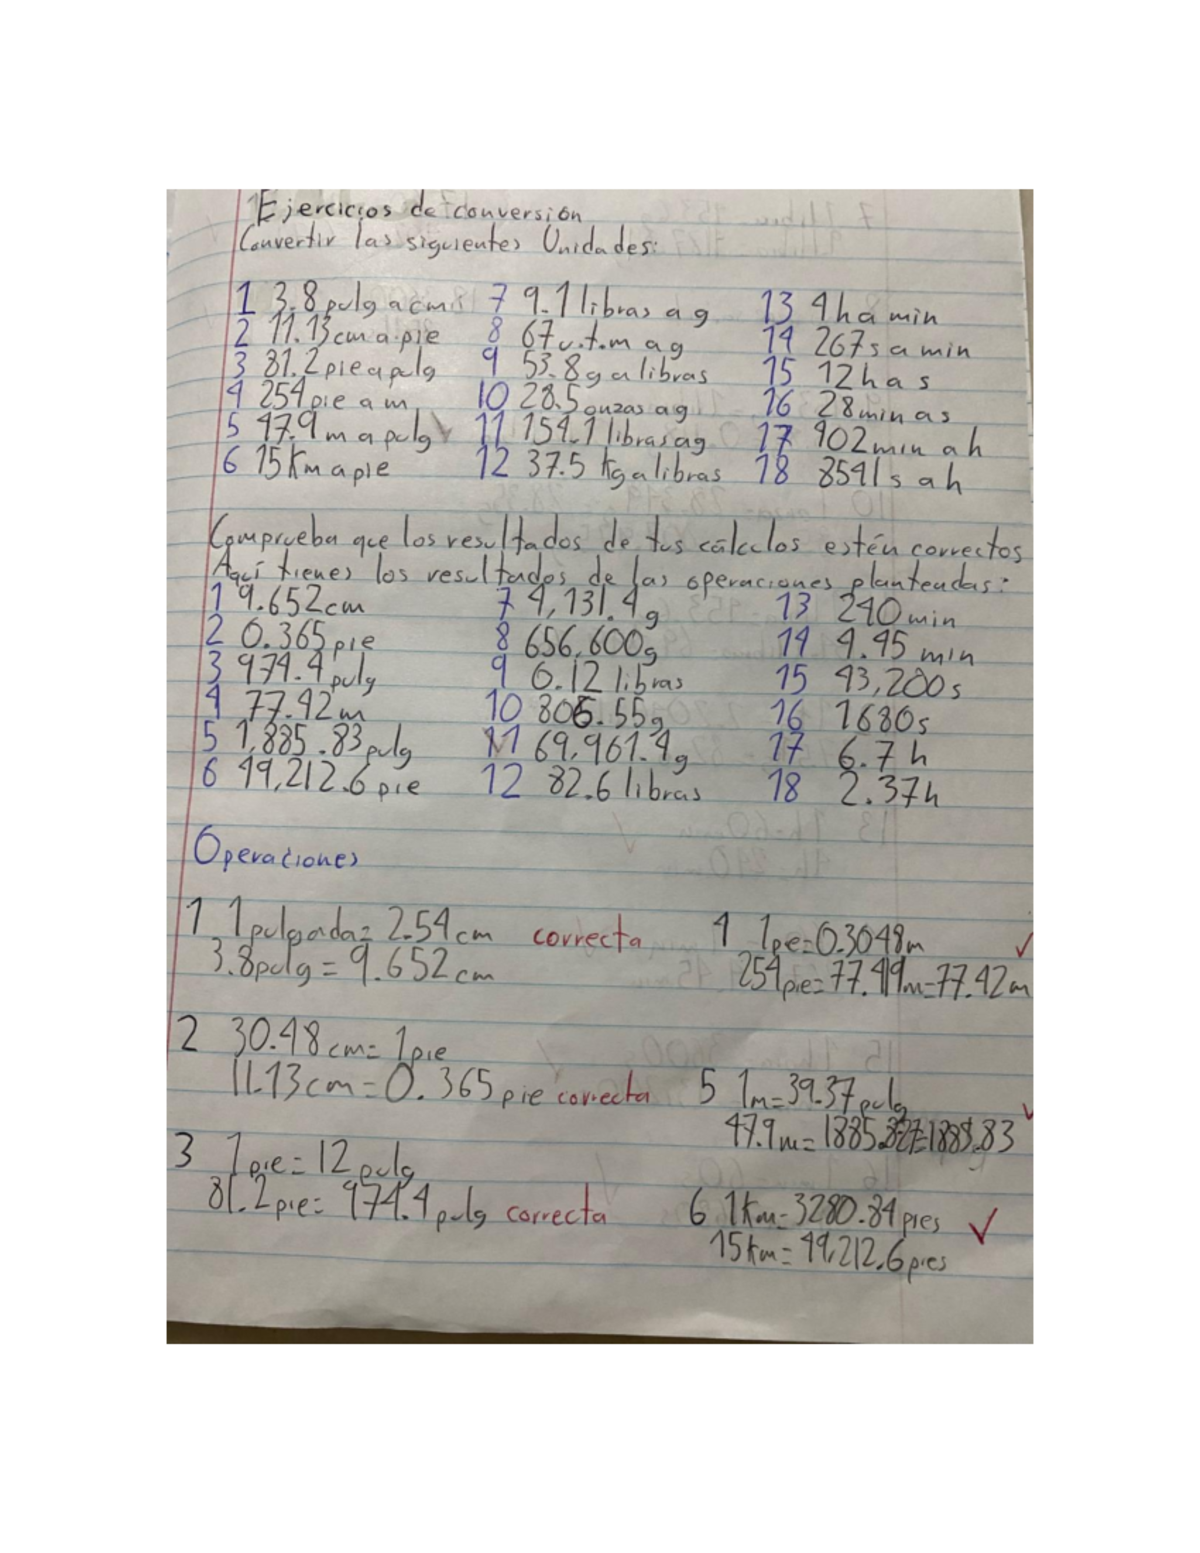 Ejercicios de conversión
Convertir las siguientes Unidades:
1 3.8 pulg a cm 7 9.1 libras a g 13 4h a min
2 11.13 cm a pie 8 67 u.t.m a g 14 267 s a min
3 81.2 pie a pulg 9 53.8 g a libras 15 12 h a s
4 254 pie a m 10 28.5 onzas a g 16 28 min a s
5 47.9 m a pulg 11 154.1 libras a g 17 402 min a h
6 15 Km a pie 12 37.5 Kg a libras 18 8541 s a h
Comprueba que los resultados de tus cálculos estén correctos
Aquí tienes los resultados de las operaciones planteadas:
1 9.652 cm 7 4,131.4 g 13 240 min
2 0.365 pie 8 656,600 g 14 4.45 min
3 974.4 pulg 9 0.12 libras 15 43,200 s
4 77.42 m 10 806.55 g 16 1680 s
5 1,885.83 pulg 11 69,961.4 g 17 6.7 h
6 49,212.6 pie 12 82.6 libras 18 2.37 h
Operaciones
1 1 pulgada = 2.54 cm correcta 4 1 pie = 0.3048 m ✓
3.8 pulg = 9.652 cm 254 pie = 77.419 m = 77.42 m
2 30.48 cm = 1 pie
11.13 cm = 0.365 pie correcta 5 1 m = 39.37 pulg ✓
47.9 m =
3 1 pie = 12 pulg
81.2 pie = 974.4 pulg correcta 6 1 Km = 3280.84 pies ✓
15 Km = 49,212.6 pies